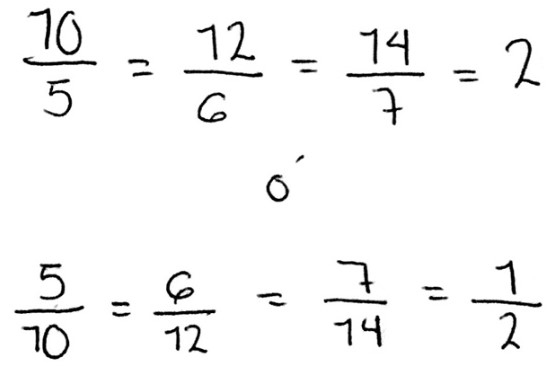 10/5 = 12/6 = 14/7 = 2
ó
5/10 = 6/12 = 7/14 = 1/2